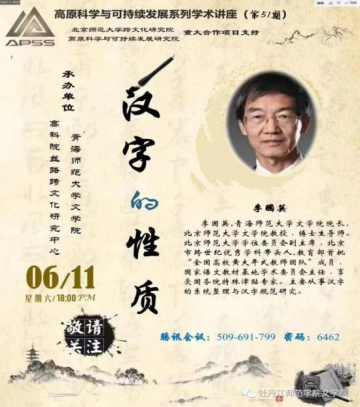 高原科学与可持续发展系列学术讲座（第51期）
APSS
北京师范大学跨文化研究院
高原科学与可持续发展研究院
重大合作项目支持
承办单位
青海师范大学文学院
高科院丝路跨文化研究中心
汉字的性质
李国英
李国英，青海师范大学文学院院长，
北京师范大学文学院教授，博士生导师，
北京师范大学学位委员会副主席，北京
市跨世纪优秀学科带头人，教育部首批
“全国高校黄大年式教师团队”成员，
国家语文教材基础学术委员会主任，享
受国务院特殊津贴专家。主要从事汉字
的系统整理与汉字规范研究。
06/11
星期六/18:00PM
敬请
关注
腾讯会议：509-691-799 密码：6462
牡丹江师范学院文学院